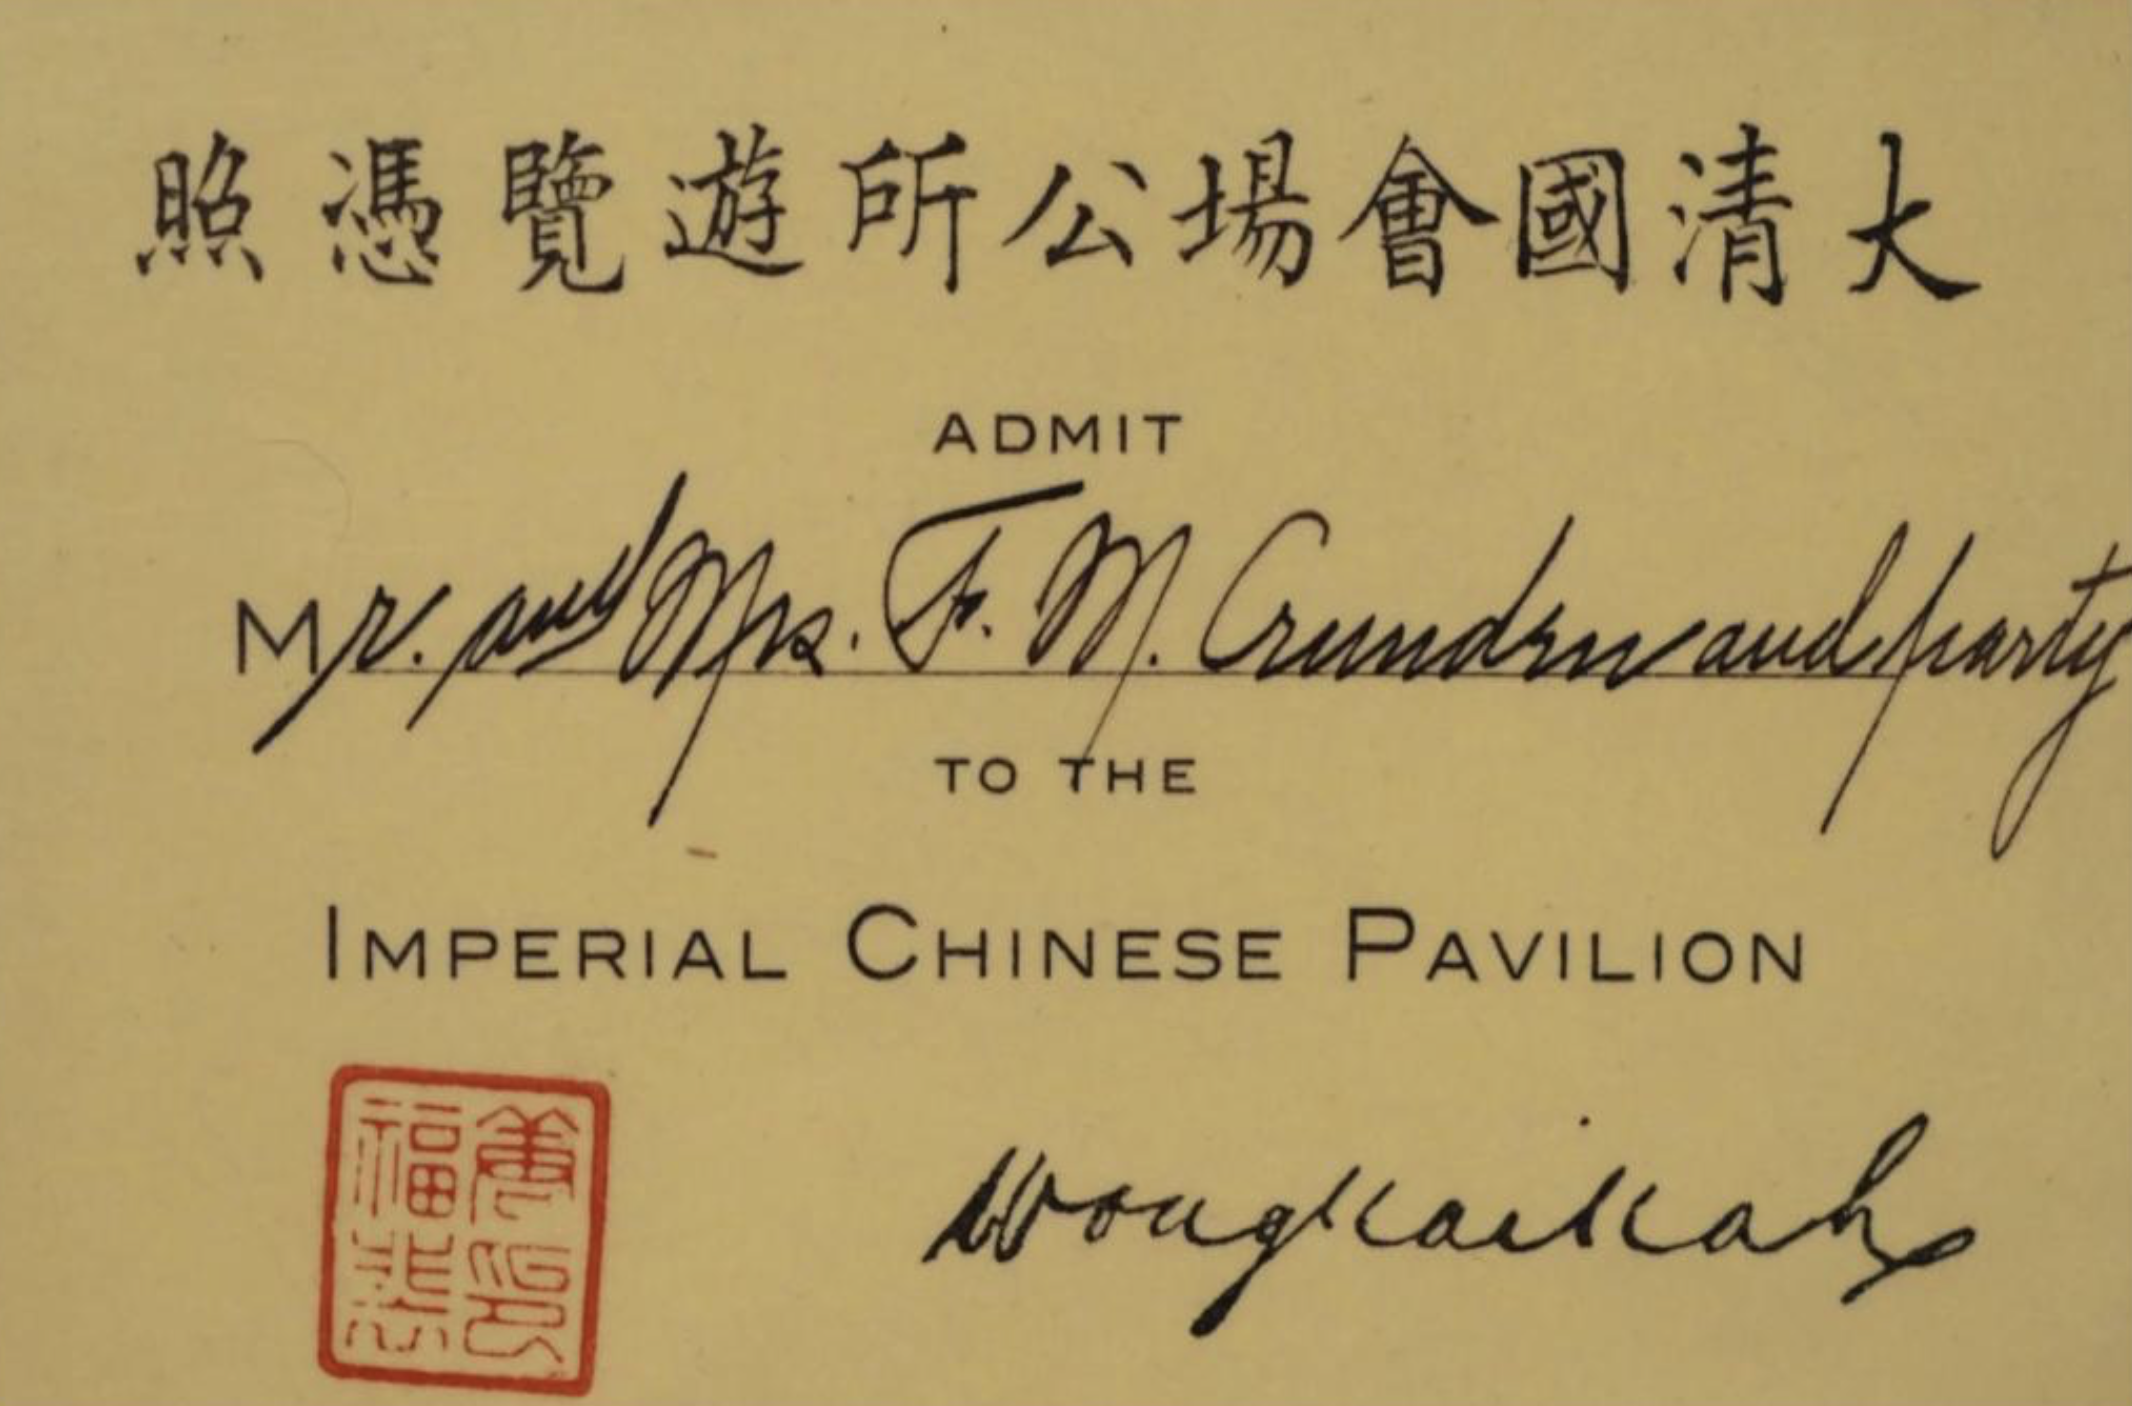 大清國會場公所遊覽憑照
ADMIT
Mr. and Mrs. F. M. Crunden and party
TO THE
IMPERIAL CHINESE PAVILION
Wong Kai Kah